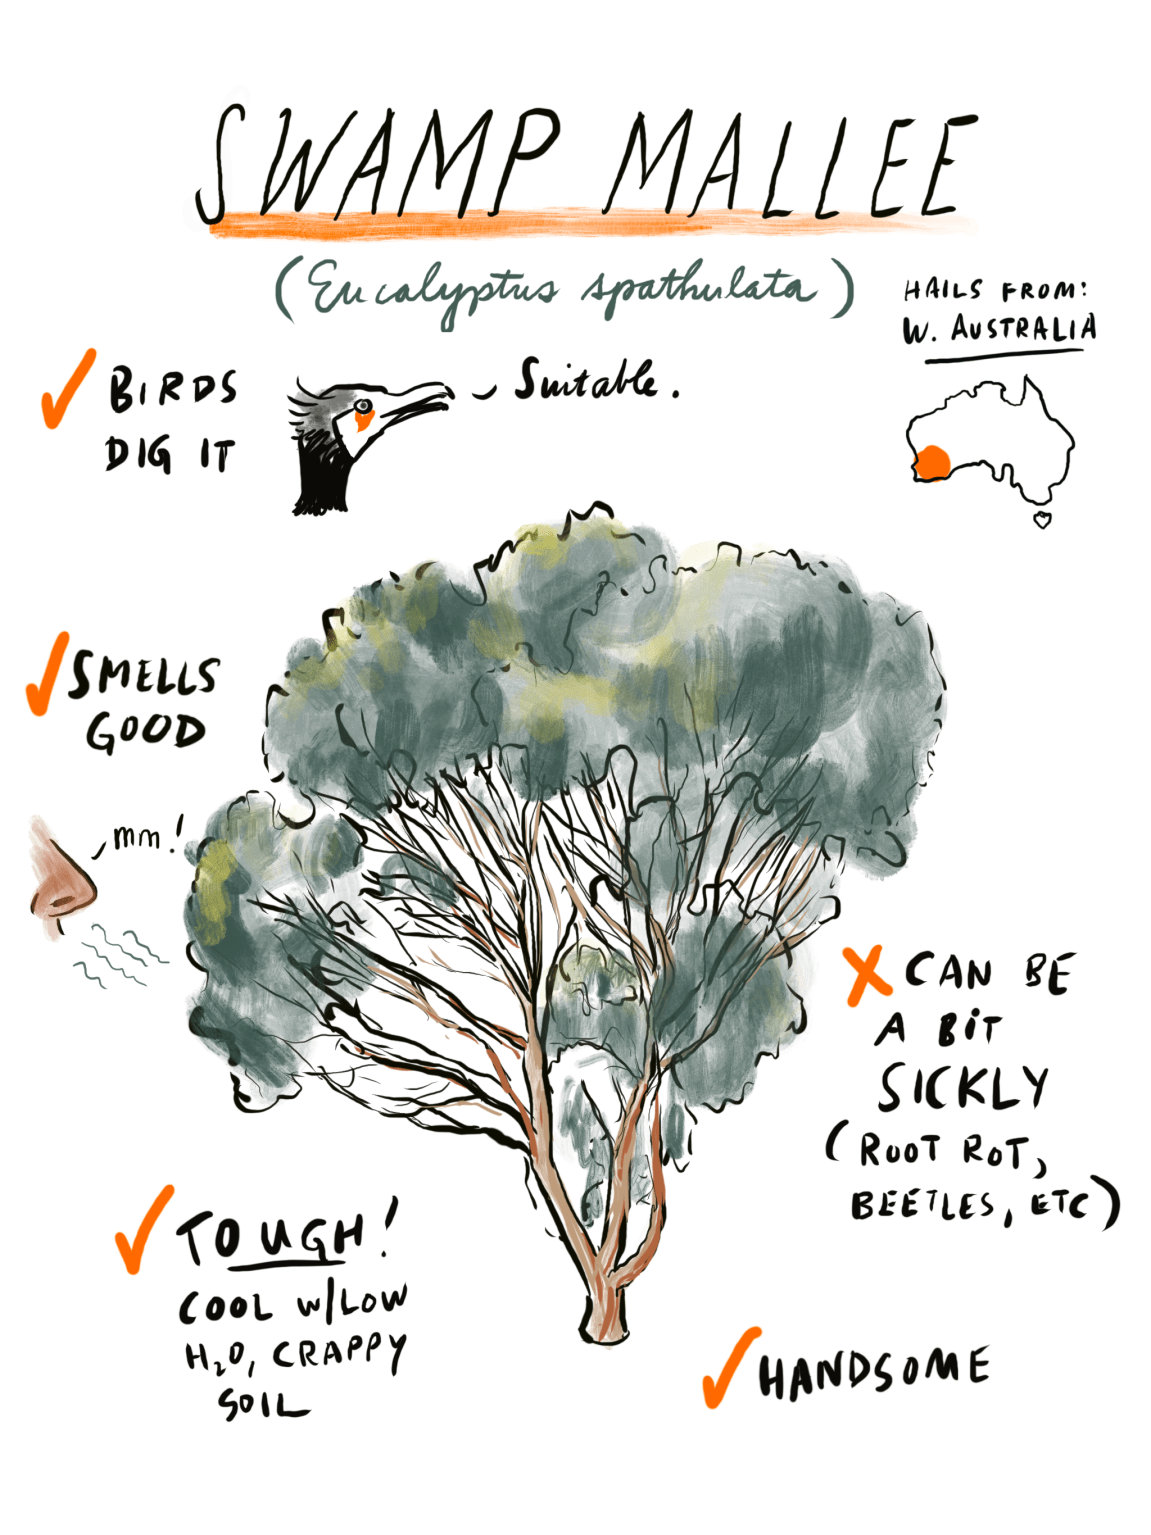 SWAMP MALLEE
(Eucalyptus spathulata)
HAILS FROM:
W. AUSTRALIA
BIRDS
DIG IT
Suitable.
SMELLS
GOOD
mm!
X CAN BE
A BIT
SICKLY
(ROOT ROT,
BEETLES, ETC)
TOUGH!
COOL W/LOW
H₂O, CRAPPY
SOIL
HANDSOME